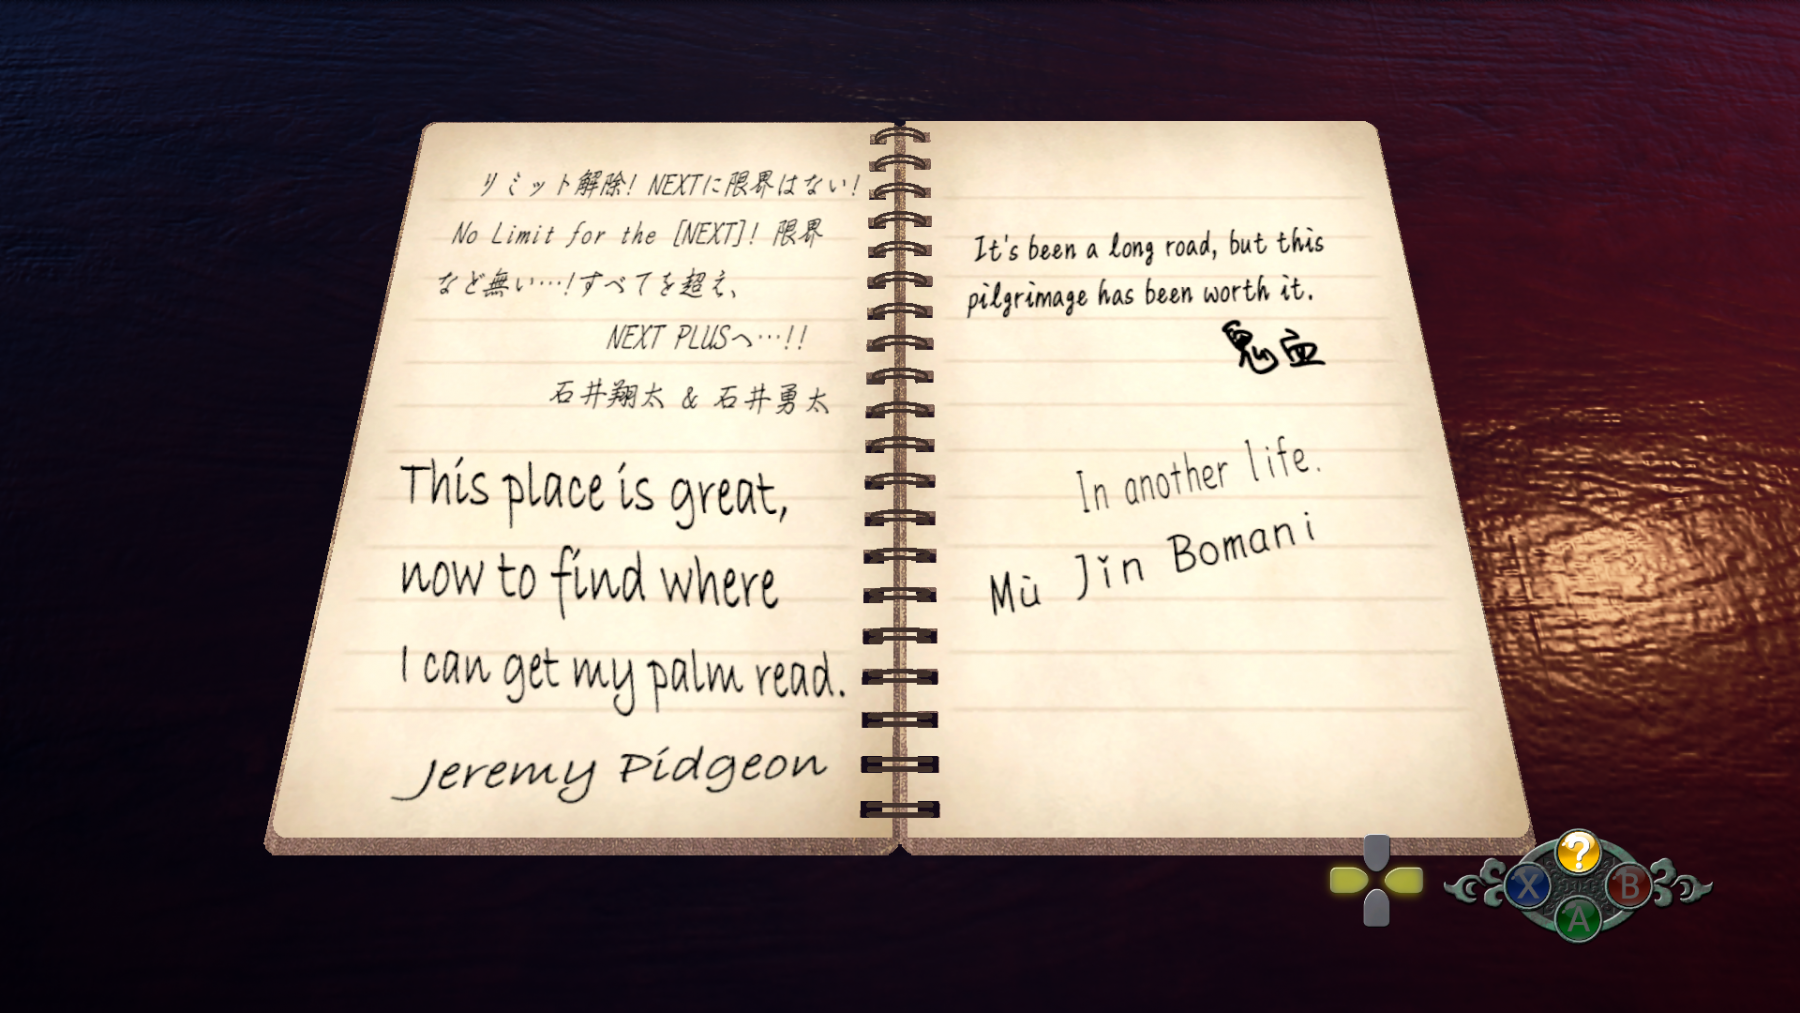 リミット解除! NEXTに限界はない!
No Limit for the [NEXT]! 限界
など無い…!すべてを超え、
NEXT PLUSへ…!!
石井翔太 & 石井勇太
This place is great,
now to find where
I can get my palm read.
Jeremy Pidgeon
It's been a long road, but this
pilgrimage has been worth it.
鬼血
In another life.
Mù Jǐn Bomani
?
X
B
A